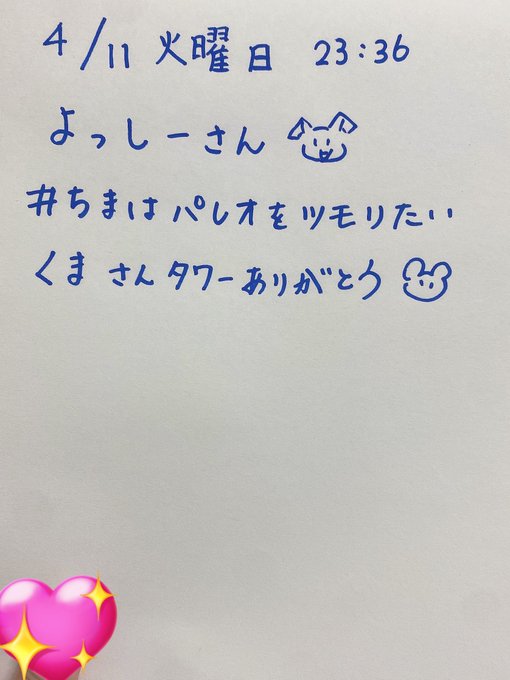 4/11 火曜日 23:36
よっしーさん
#ちまはパレオをツモりたい
くまさんタワーありがとう